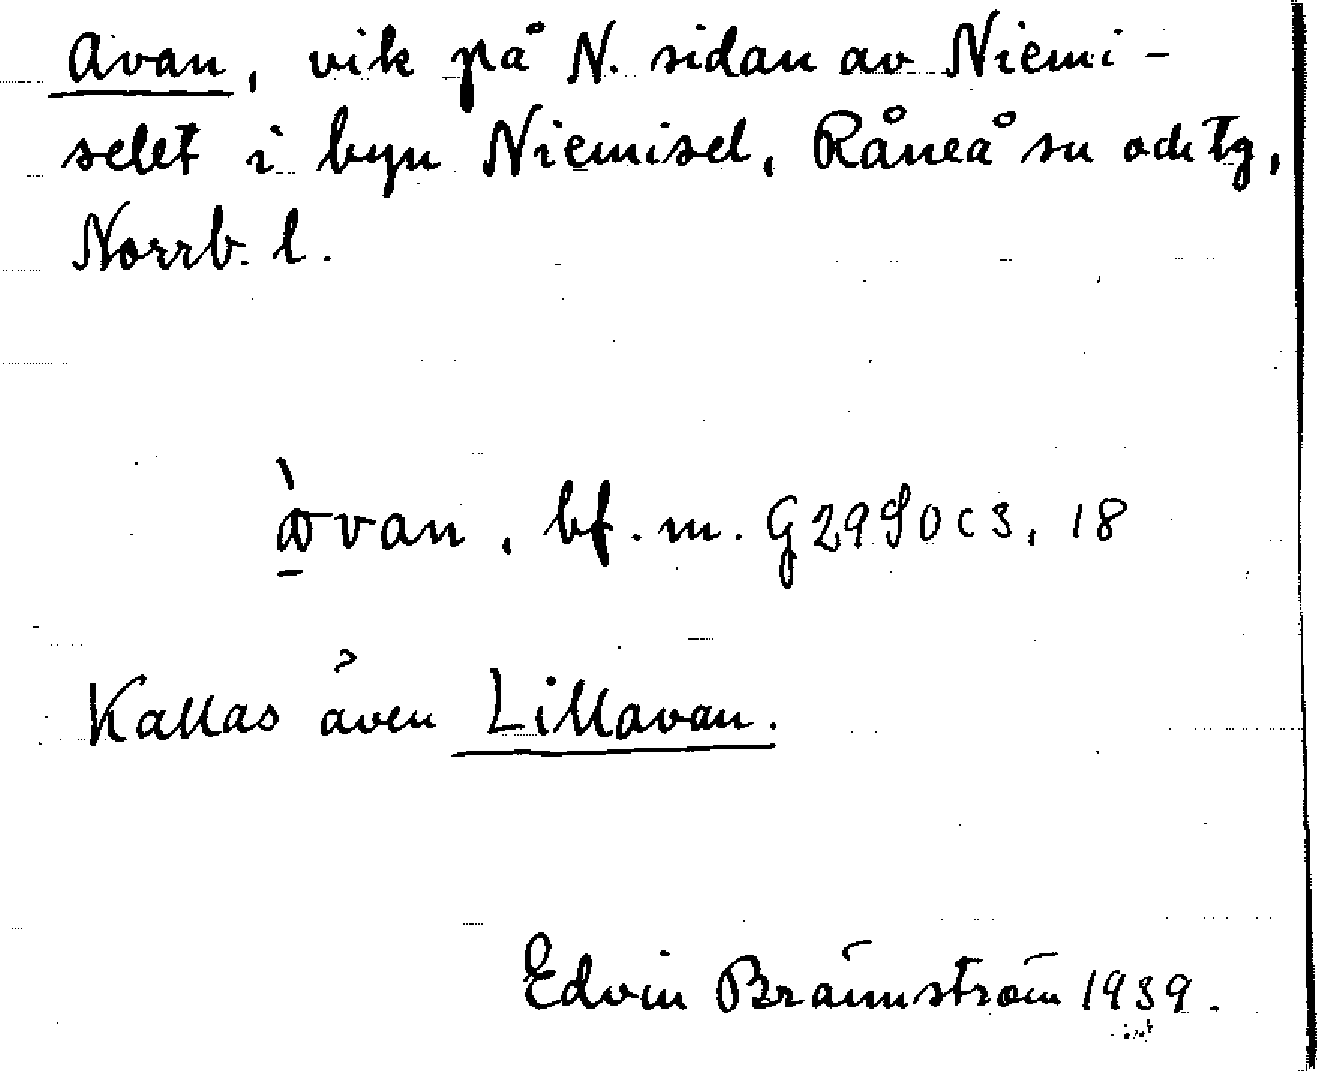 Avan, vik på N. sidan av Niemi-
selet i byn Niemisel, Råneå sn och tg,
Norrb. l.
àvan, bf. m. G2990 c 3, 18
Kallas även Lillavan.
Edvin Brännström 1939.